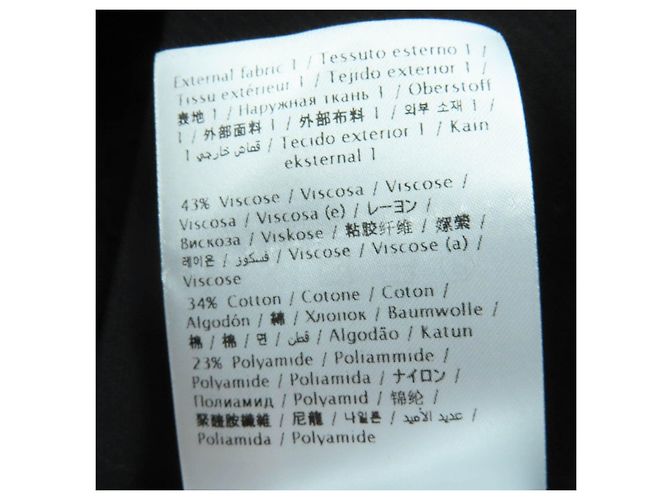 External fabric 1 / Tessuto esterno 1 /
Tissu extérieur 1 / Tejido exterior 1 /
表地 1 / Наружная ткань 1 / Oberstoff
1 / 外部面料 1 / 外部布料 1 / 외부 소재 1 /
قماش خارجي 1 / Tecido exterior 1 / Kain
eksternal 1
43% Viscose / Viscosa / Viscose /
Viscosa / Viscosa (e) / レーヨン /
Вискоза / Viskose / 粘胶纤维 / 嫘縈 /
레이온 / فسكوز / Viscose / Viscose (a) /
Viscose
34% Cotton / Cotone / Coton /
Algodón / 綿 / Хлопок / Baumwolle /
棉 / 棉 / 면 / قطن / Algodão / Katun
23% Polyamide / Poliammide /
Polyamide / Poliamida / ナイロン /
Полиамид / Polyamid / 锦纶 /
聚醯胺纖維 / 尼龍 / 나일론 / عديد الأميد /
Poliamida / Polyamide